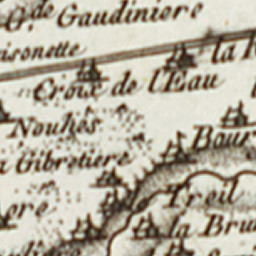 G.de Gaudiniere
isonette
la
Croix de l'Eau
Nouhes
Bour
a Gibretiere
le Treil
ere
la Bru